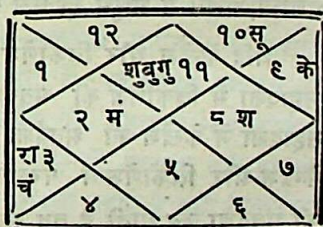 १२ १०सू
१ शुबुगु ११ ९ के
२ मं ८ श
रा ३
चं ५ ७
४ ६